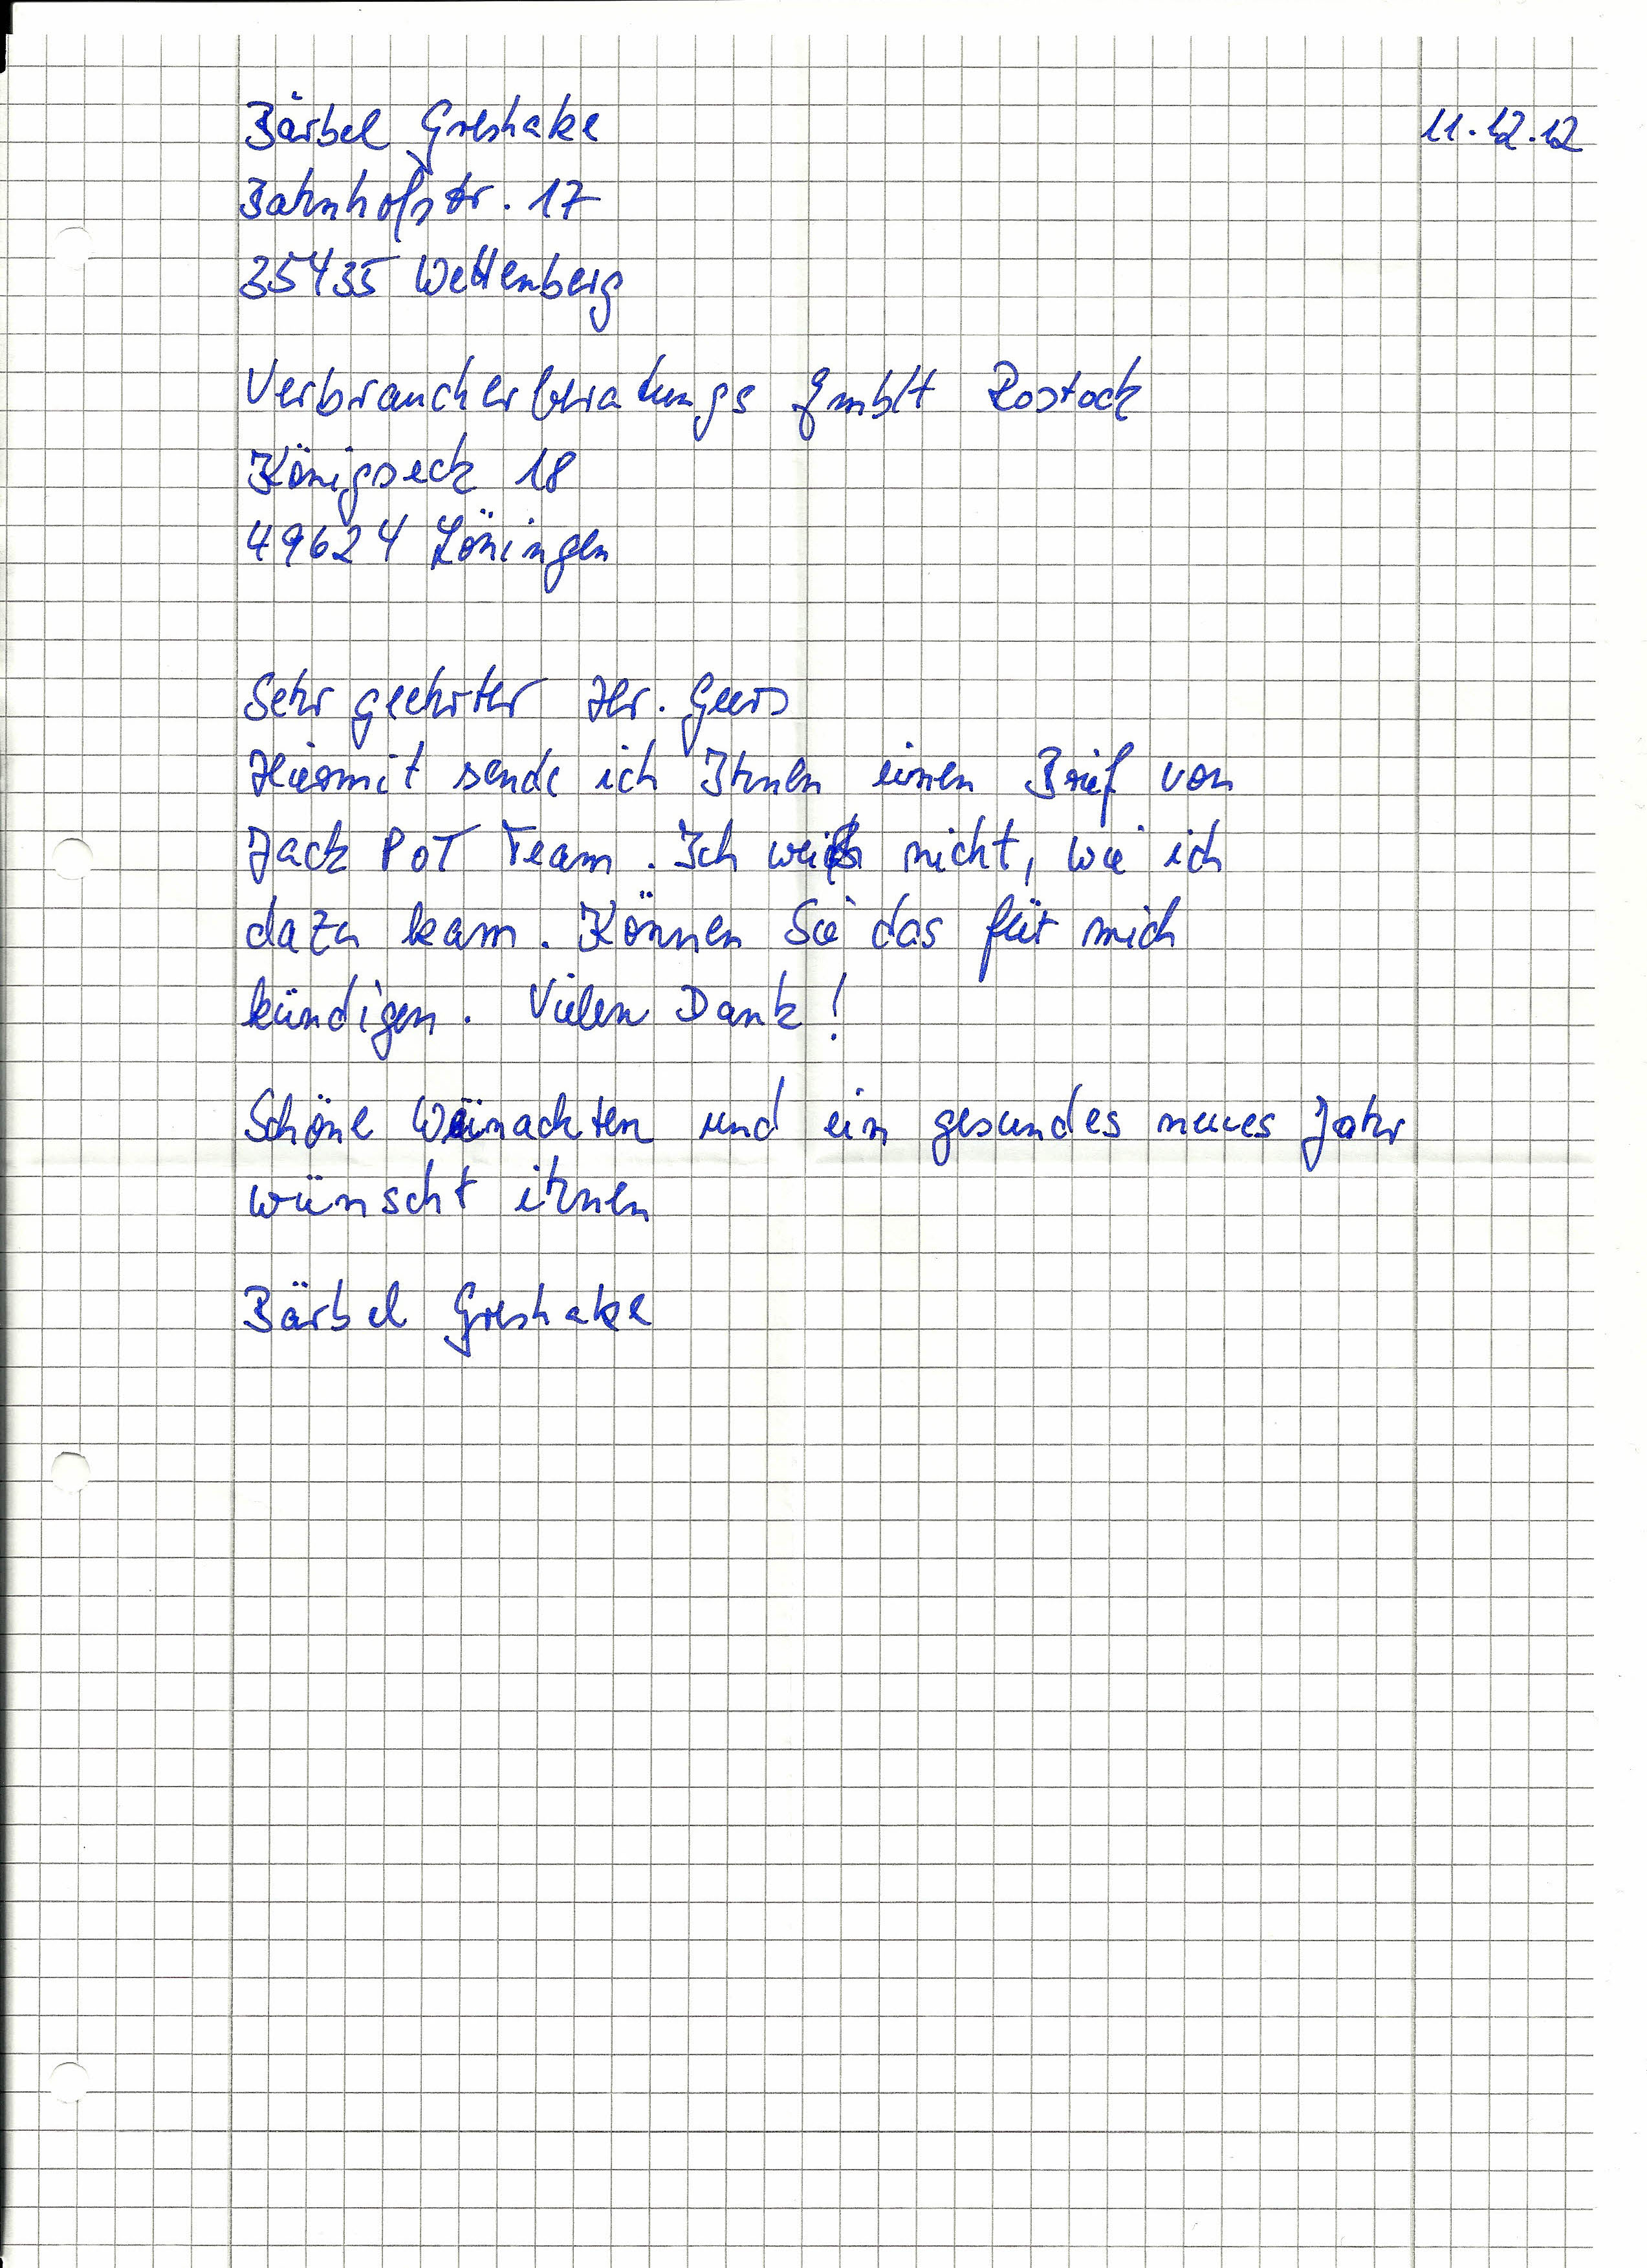 Bärbel Greshake
11.12.12
Bahnhofstr. 17
35435 Wettenberg
Verbraucherberatungs GmbH Rostock
Königseck 18
49624 Löningen
Sehr geehrter Hr. Geers
Hiermit sende ich Ihnen einen Brief von
Jack PoT Team. Ich weiß nicht, wie ich
dazu kam. Können Sie das für mich
kündigen. Vielen Dank!
Schöne Weinachten und ein gesundes neues Jahr
wünscht ihnen
Bärbel Greshake